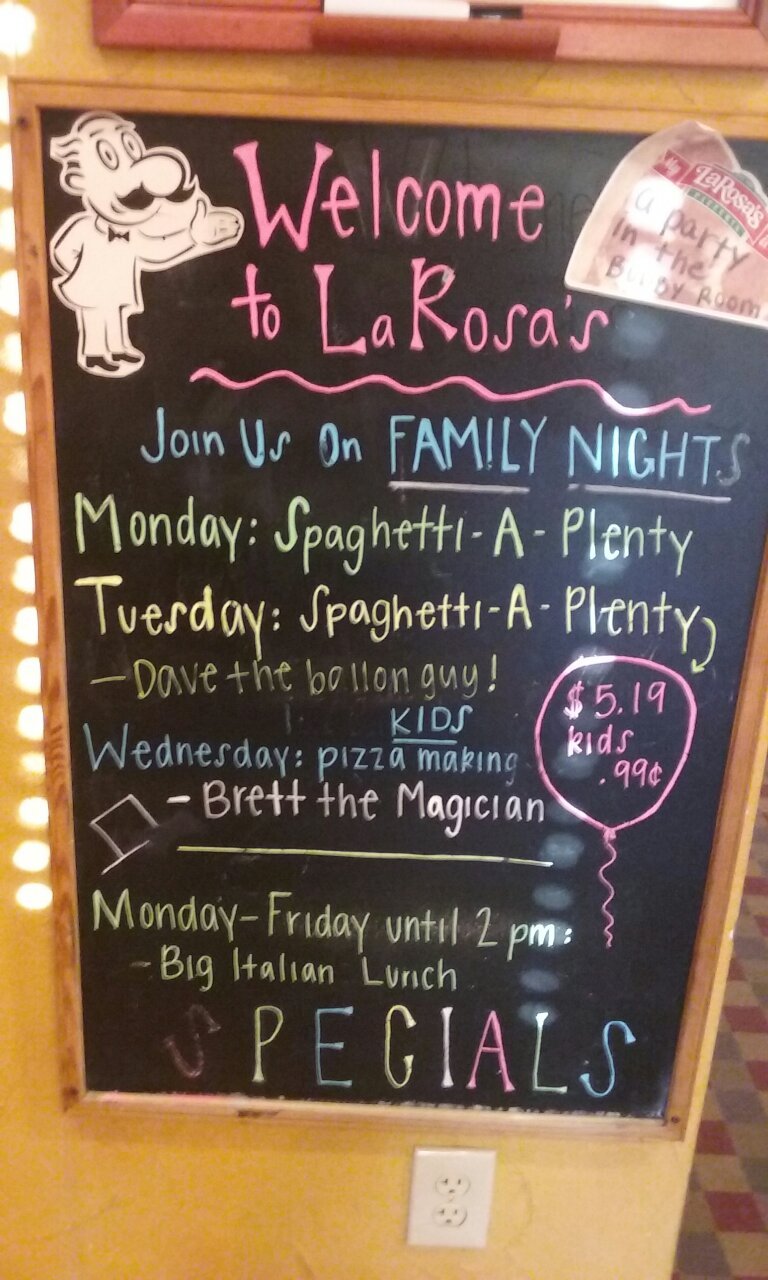 Welcome
to LaRosa's
LaRosa's
a party
in the
Buddy Room
Join Us On FAMILY NIGHTS
Monday: Spaghetti-A-Plenty
Tuesday: Spaghetti-A-Plenty
—Dave the ballon guy!
$5.19
kids
.99¢
KIDS
Wednesday: pizza making
- Brett the Magician
Monday-Friday until 2 pm:
- Big Italian Lunch
SPECIALS